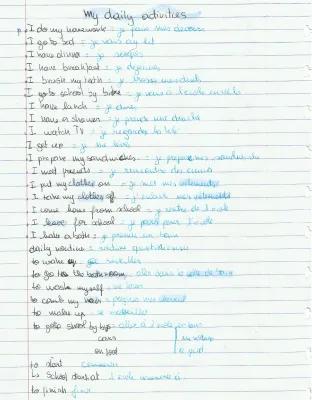 My daily activities
I do my homework = je fais mes devoirs
I go to bed = je vais au lit
I have dinner = je
I have breakfast = je déjeune
I brush my teeth = je brosse mes dents
I go to school by bike = je vais à l'école en vélo
I have lunch = je dine
I have a shower = je prends une douche
I watch TV = je regarde la télé
I get up = je me lève
I prepare my sandwiches = je prépare mes sandwichs
I meet friends = je rencontre des amis
I put my clothes on = je met mes vêtements
I take my clothes off = j'enlève mes vêtements
I come home from school = je rentre de l'école
I leave for school = je pars pour l'école
I have a bath = je prends un bain
daily routine = routine quotidienne
to wake up = se réveiller
to go to the bathroom = aller dans la salle de bain
to wash myself = se laver
to comb my hair = peigner mes cheveux
to make up = se maquiller
to go to school by bus = aller à l'école en bus
cars en voiture
on foot à pied
to start commencer
↳ School starts at l'école commence à
to finish finir